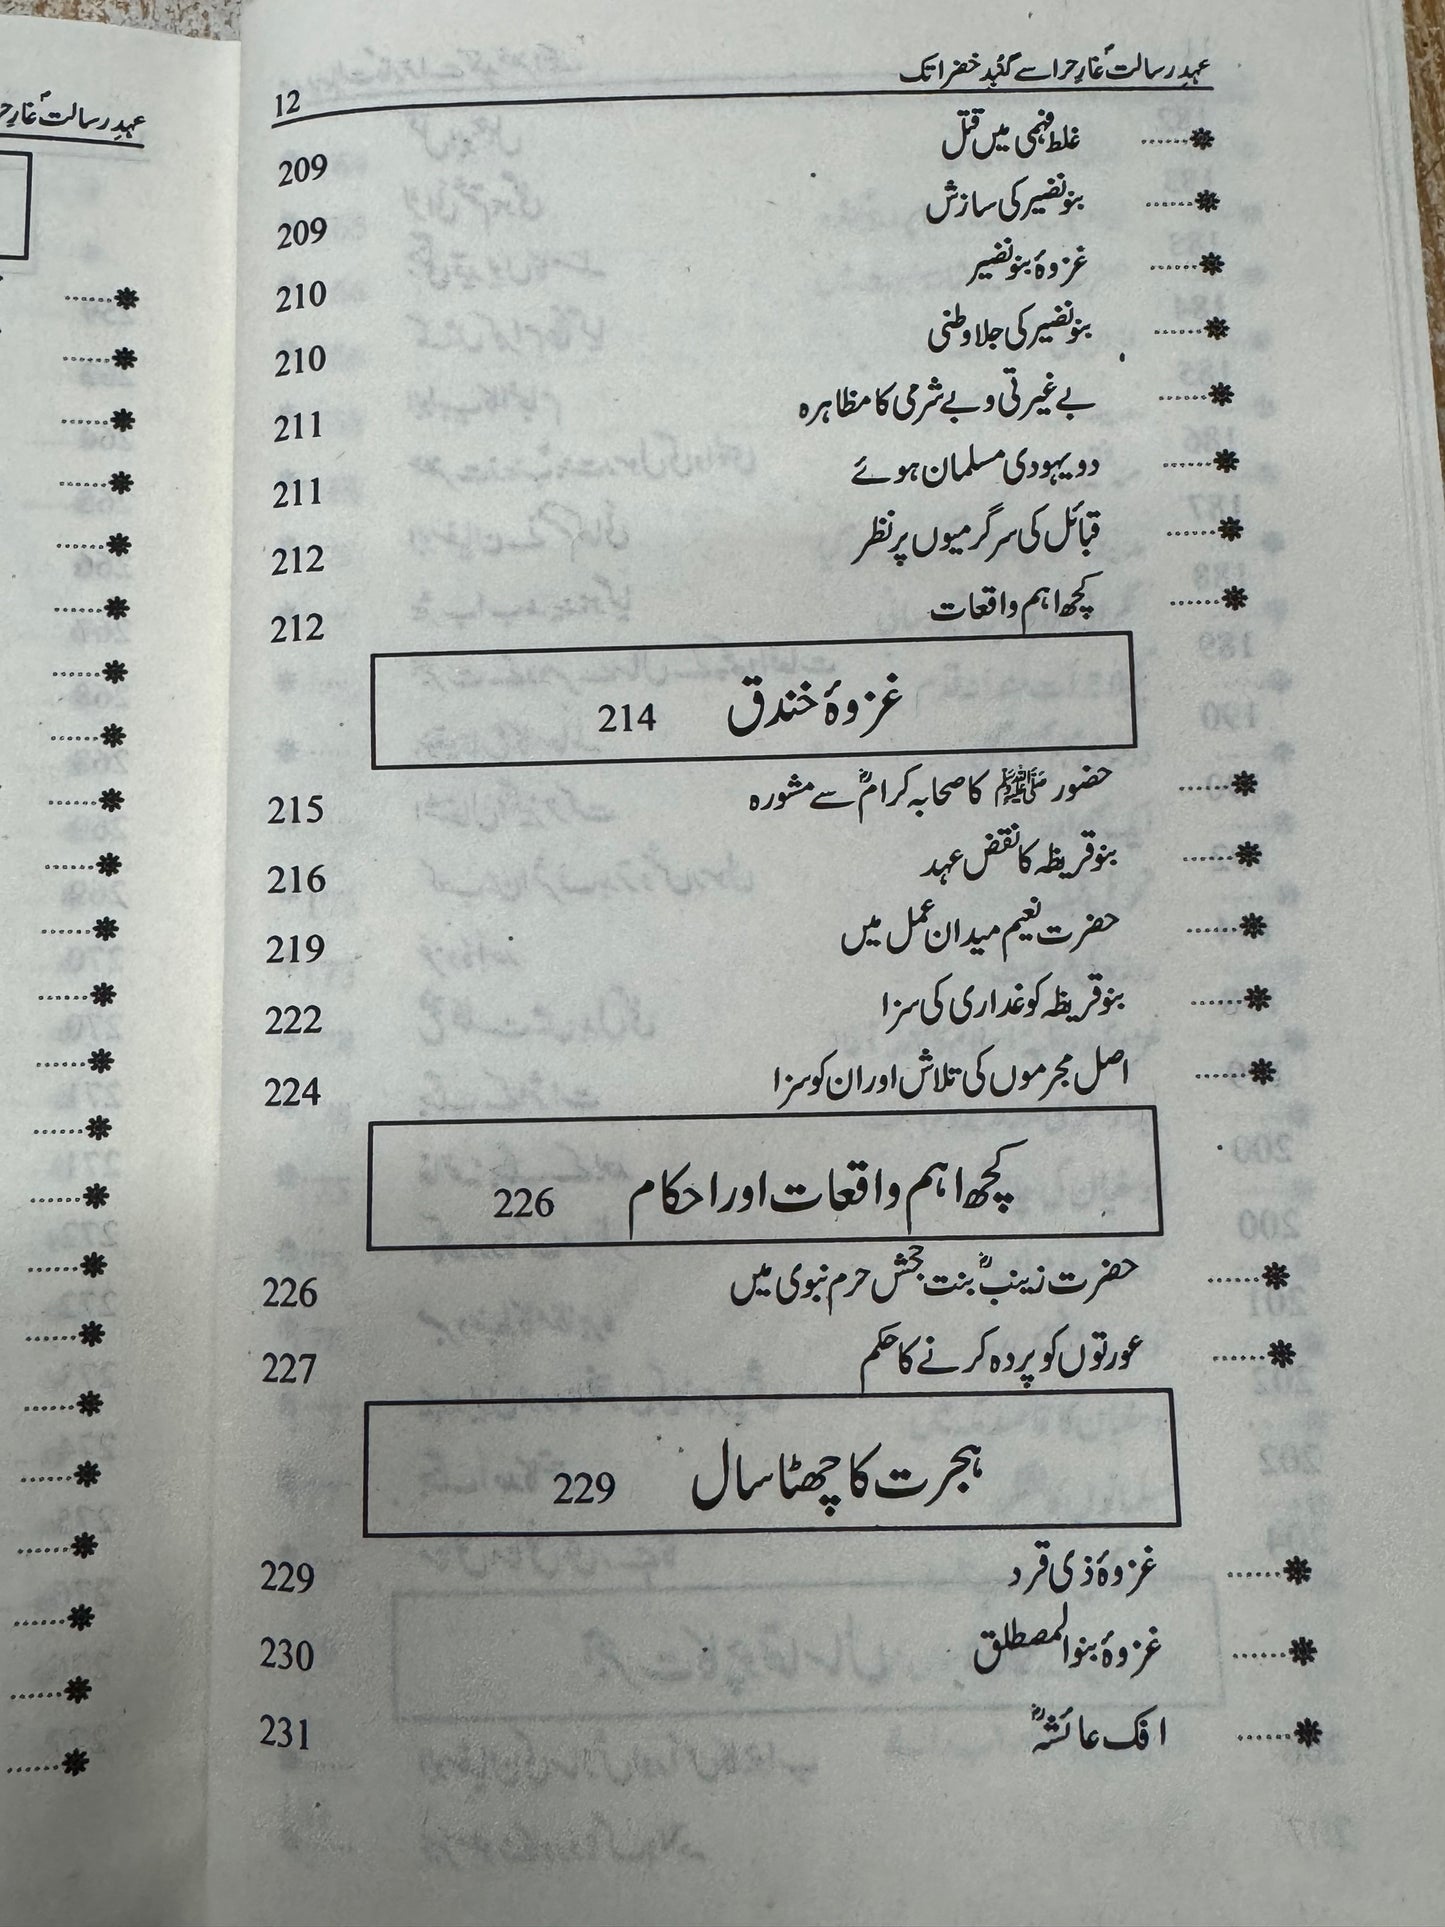 عہدِ رسالتؐ غارِ حرا سے گنبد خضرا تک
12
غلط فہمی میں قتل ...... 209
بنو نضیر کی سازش ...... 209
غزوۂ بنو نضیر ...... 210
بنو نضیر کی جلاوطنی ...... 210
بے غیرتی و بے شرمی کا مظاہرہ ...... 211
دو یہودی مسلمان ہوئے ...... 211
قبائل کی سرگرمیوں پر نظر ...... 212
کچھ اہم واقعات ...... 212
غزوۂ خندق 214
حضور ﷺ کا صحابہ کرامؓ سے مشورہ ...... 215
بنو قریظہ کا نقض عہد ...... 216
حضرت نعیم میدان عمل میں ...... 219
بنو قریظہ کو غداری کی سزا ...... 222
اصل مجرموں کی تلاش اور ان کو سزا ...... 224
کچھ اہم واقعات اور احکام 226
حضرت زینبؓ بنت جحش حرم نبوی میں ...... 226
عورتوں کو پردہ کرنے کا حکم ...... 227
ہجرت کا چھٹا سال 229
غزوۂ ذی قرد ...... 229
غزوۂ بنو المصطلق ...... 230
افک عائشہؓ ...... 231
عہدِ رسالتؐ غارِ